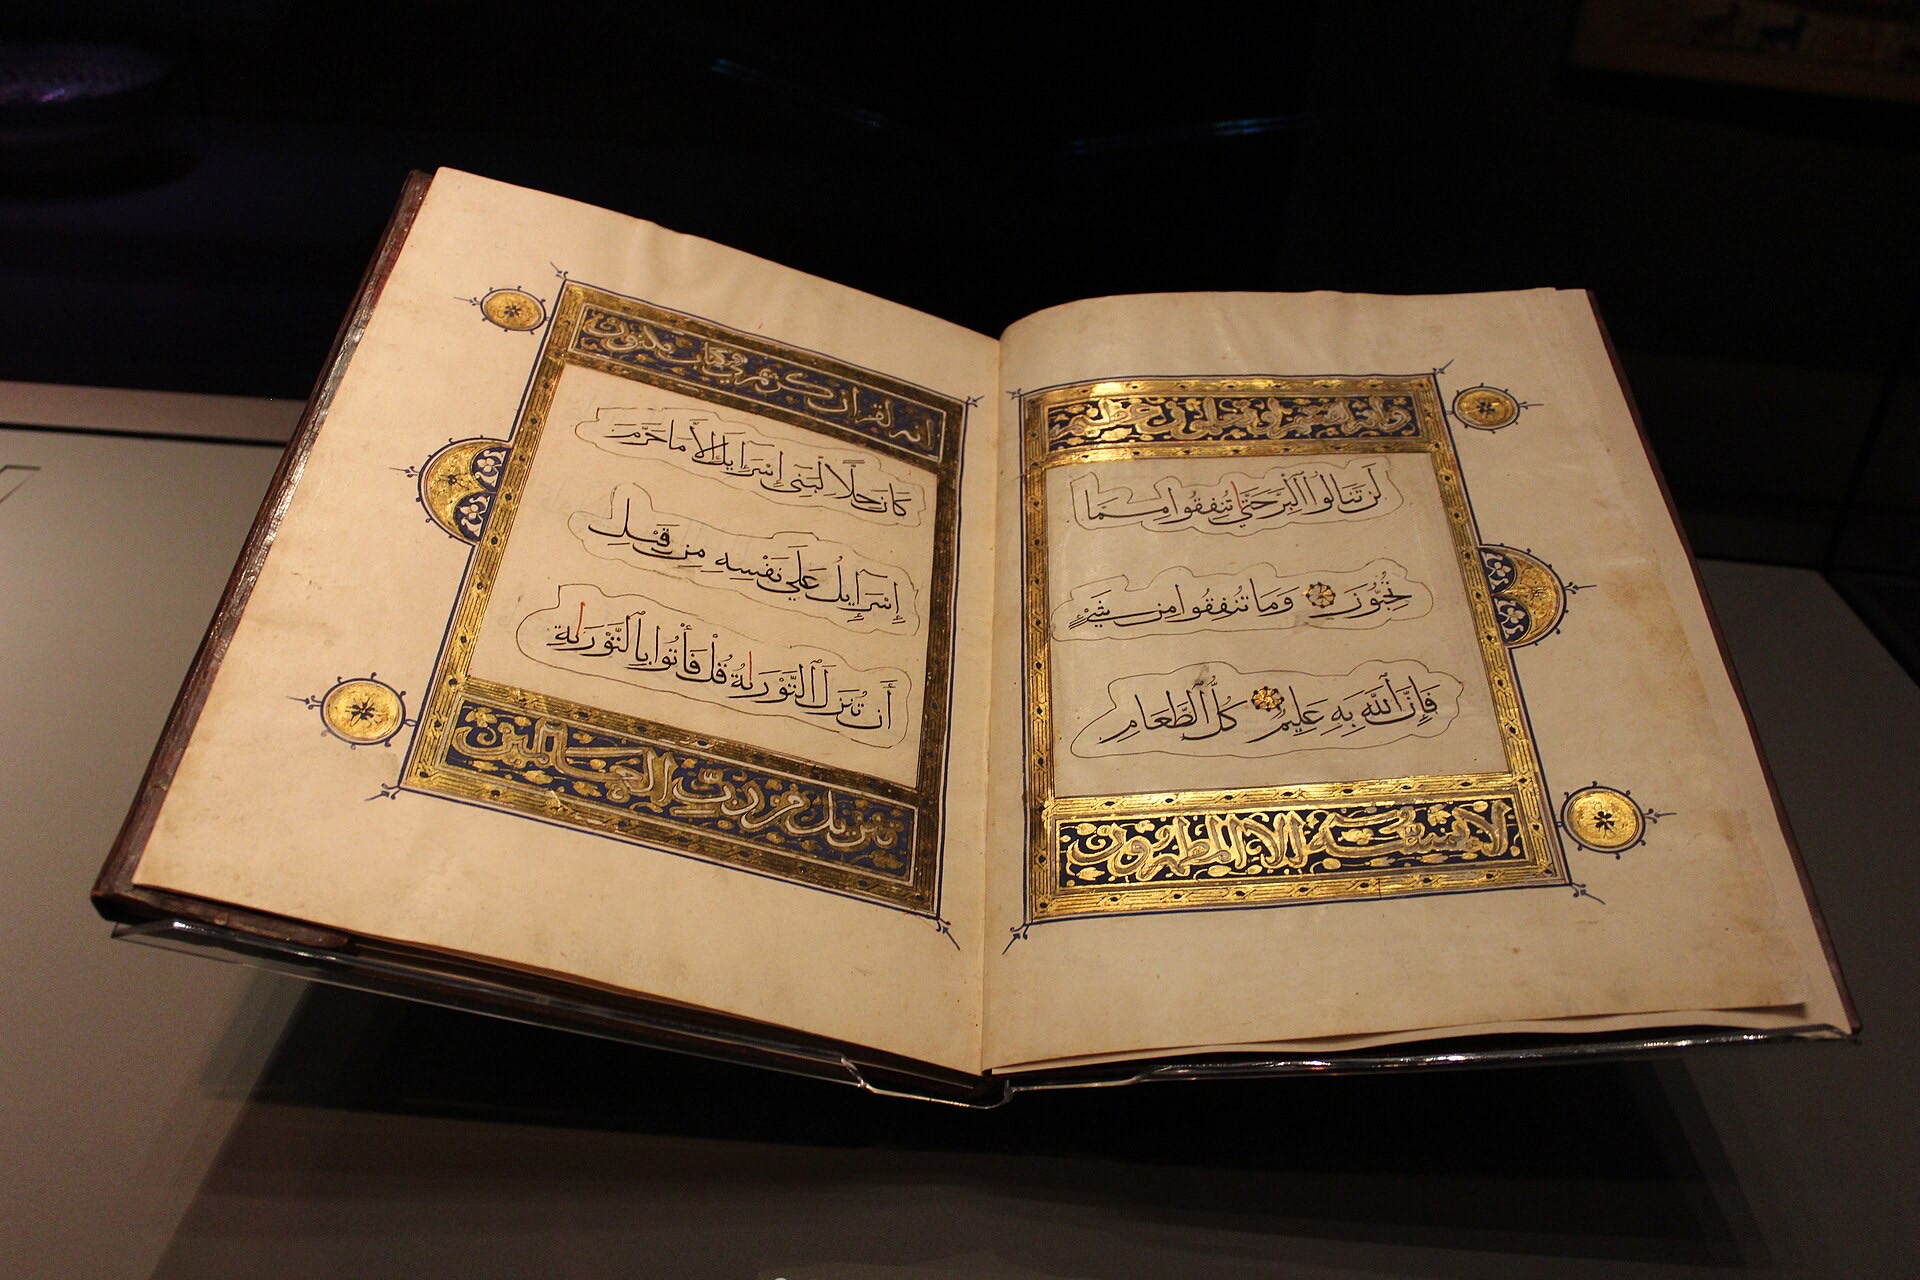 وانه لقسم لو تعلمون عظيم
لَن تَنَالُوا ٱلْبِرَّ حَتَّىٰ تُنفِقُوا مِمَّا
تُحِبُّونَ وَمَا تُنفِقُوا مِن شَيْءٍ
فَإِنَّ ٱللَّهَ بِهِ عَلِيمٌ كُلُّ ٱلطَّعَامِ
لا يمسه الا المطهرون
انه لقران كريم في كتاب مكنون
كَانَ حِلًّا لِبَنِي إِسْرَايِلَ إِلَّا مَا حَرَّمَ
إِسْرَايِلُ عَلَى نَفْسِهِ مِن قَبْلِ
أَن تُنَزَّلَ ٱلتَّوْرَىٰةُ قُلْ فَأْتُوا بِٱلتَّوْرَىٰةِ
تنزيل من رب العالمين